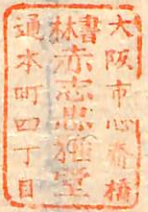 大阪市心斎橋
書林
赤志忠雅堂
通本町四丁目